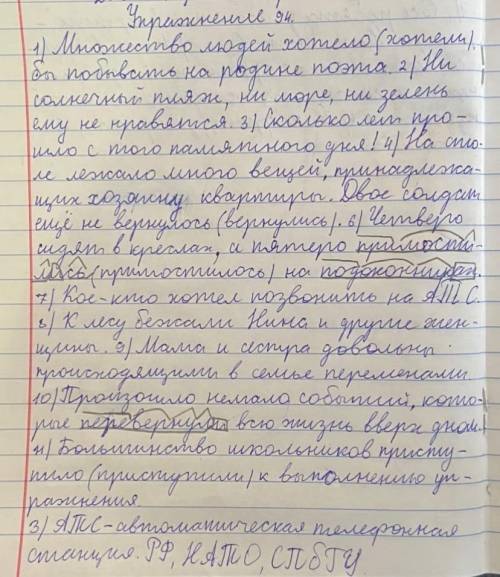 Упражнение 94.
1) Множество людей хотело (хотели)
бы побывать на родине поэта. 2) Ни
солнечный пляж, ни море, ни зелень
ему не нравятся. 3) Сколько лет про-
шло с того памятного дня! 4) На сто-
ле лежало много вещей, принадлежа-
щих хозяину квартиры. Двое солдат
ещё не вернулось (вернулись). 6) Четверо
сидят в креслах, а пятеро примости-
лись (примостилось) на подоконниках.
7) Кое-кто хотел позвонить на АТС.
8) К лесу бежали Нина и другие жен-
щины. 9) Мама и сестра довольны
происходящими в семье переменами.
10) Произошло немало событий, кото-
рые перевернули всю жизнь вверх дном.
11) Большинство школьников присту-
пило (приступили) к выполнению уп-
ражнения.
3) АТС-автоматическая телефонная
станция. РФ, НАТО, СПбГУ.